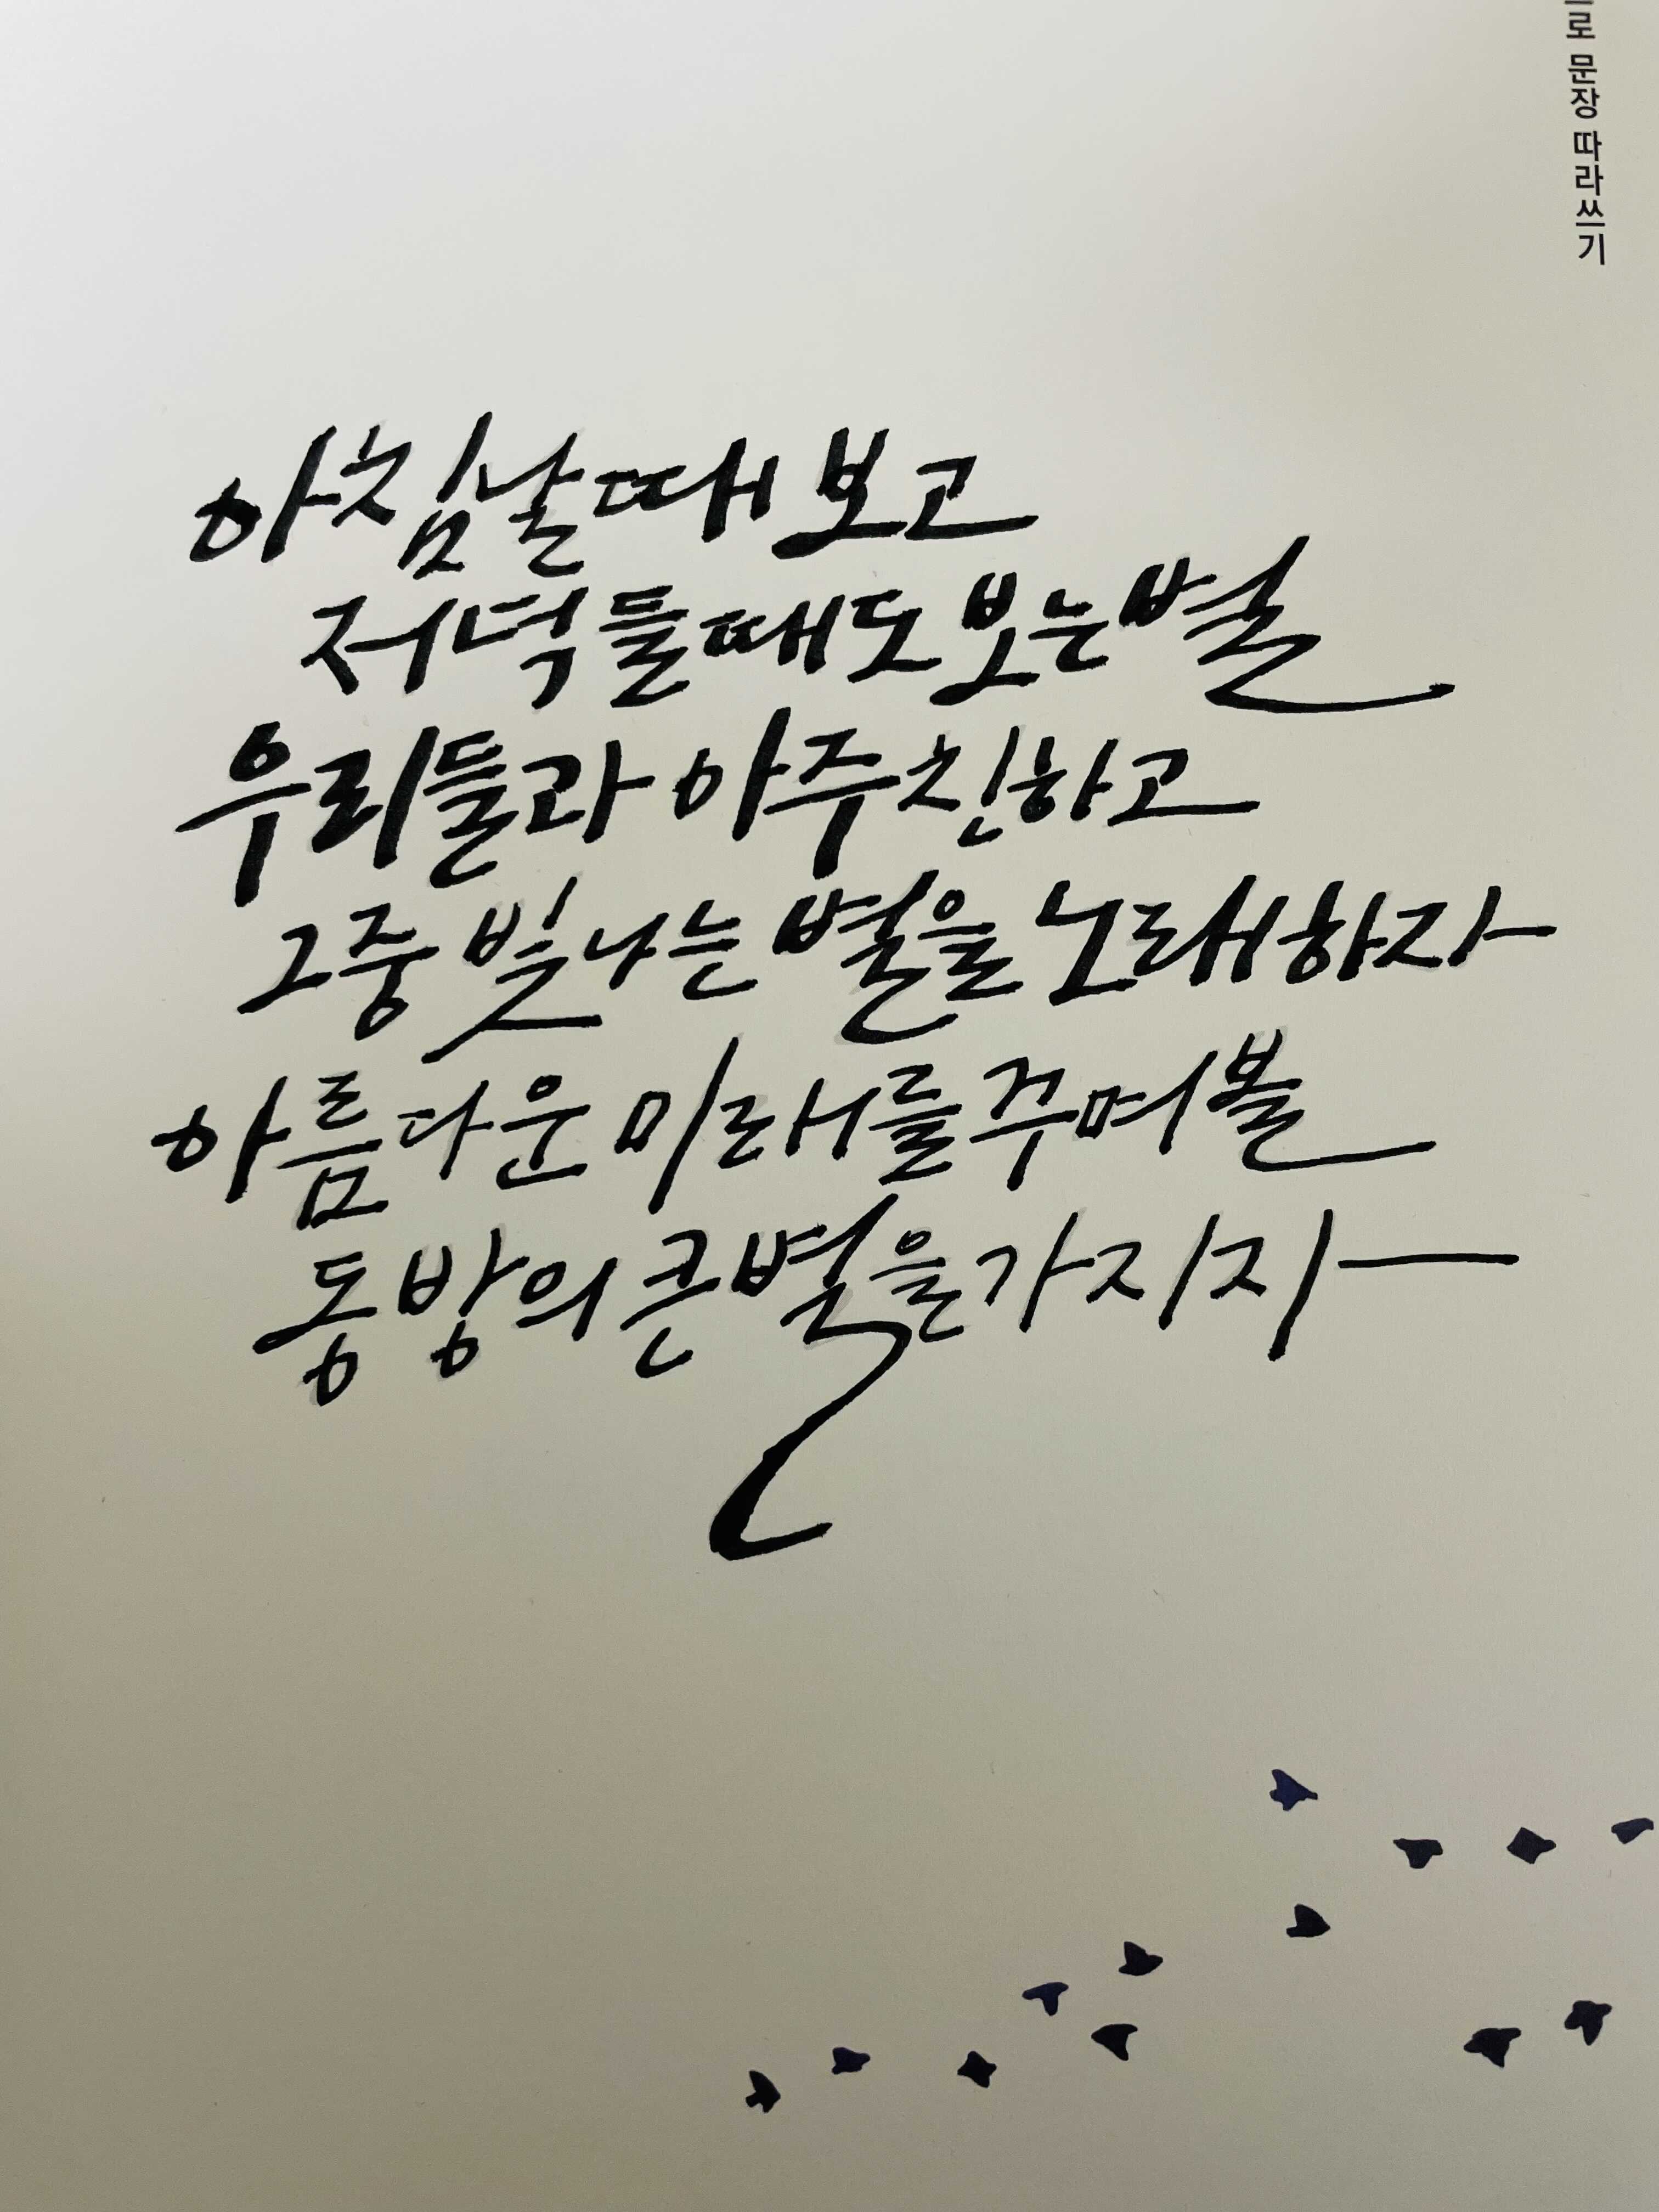 로 문장 따라쓰기
아침 날 때 보고
저녁 들 때도 보는 별
우리들과 아주 친하고
그중 빛나는 별을 노래하자
아름다운 미래를 꾸며볼
동방의 큰 별을 가지자